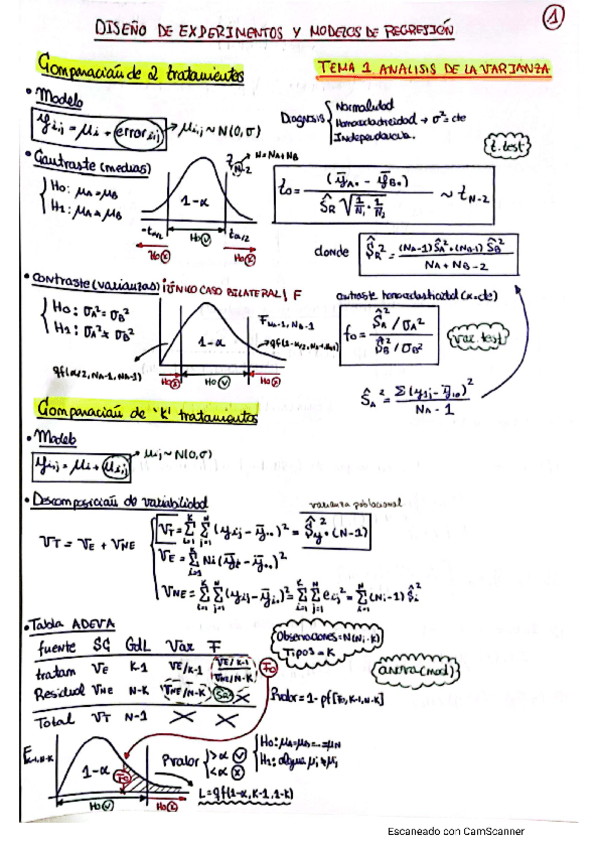 ①
DISEÑO DE EXPERIMENTOS Y MODELOS DE REGRESIÓN
Comparación de 2 tratamientos
TEMA 1 ANALISIS DE LA VARIANZA
• Modelo
yi,j = μi + error i,j → μi,j ~ N(0,σ)
Diagnosis { Normalidad
Homocedasticidad → σ² = cte
Independencia.
t.test
• Contraste (medias)
{ H0: μA = μB
H1: μA ≠ μB
tN-2 N = NA+NB
1-α
-tα/2 tα/2
H0 ⓧ H0 ⓥ H0 ⓧ
t0 = (ȳA• - ȳB•) / ŜR √(1/N1 · 1/N2) ~ tN-2
donde ŜR² = (NA-1)ŜA² + (NB-1)ŜB² / NA + NB - 2
• Contraste (varianzas) ¡ÚNICO CASO BILATERAL! F
{ H0: σA² = σB²
H1: σA² ≠ σB²
FNA-1, NB-1
1-α
qf(α/2, NA-1, NB-1)
qf(1-α/2, NA-1, NB-1)
H0 ⓧ H0 ⓥ H0 ⓧ
contraste homocedasticidad (α=cte)
f0 = ŜA² / σA² / ŜB² / σB²
var.test
ŜA² = Σ(yij - ȳi•)² / NA - 1
Comparación de 'K' tratamientos
• Modelo
yi,j = μi + μi,j → μij ~ N(0,σ)
• Descomposición de variabilidad
varianza poblacional
VT = VE + VNE
{ VT = Σ(i=1..K) Σ(j=1..N) (yij - ȳ••)² = Ŝy² • (N-1)
VE = Σ(i=1..K) Ni (ȳi - ȳ••)²
VNE = Σ(i=1..K) Σ(j=1..N) (yij - ȳi•)² = Σ(i=1..K) Σ(j=1..N) eij² = Σ(i=1..N) (Ni-1) Ŝi²
• Tabla ADEVA
Observaciones = N (Ni·K)
Tipos = K
fuente SC GdL Var F
tratam VE K-1 VE/K-1 VE/K-1 / VNE/N-K F0
Residual VNE N-K VNE/N-K ŜR² X
Total VT N-1 X X
anova(mod)
Pvalor = 1 - pf[F0, K-1, N-K]
FK-1,N-K
1-α F0
H0 ⓥ H0 ⓧ
Pvalor { >α ⓥ
<α ⓧ
{ H0: μA = μB = ... = μN
H1: algun μi ≠ μj
L = qf(1-α, K-1, 1-K)
Escaneado con CamScanner